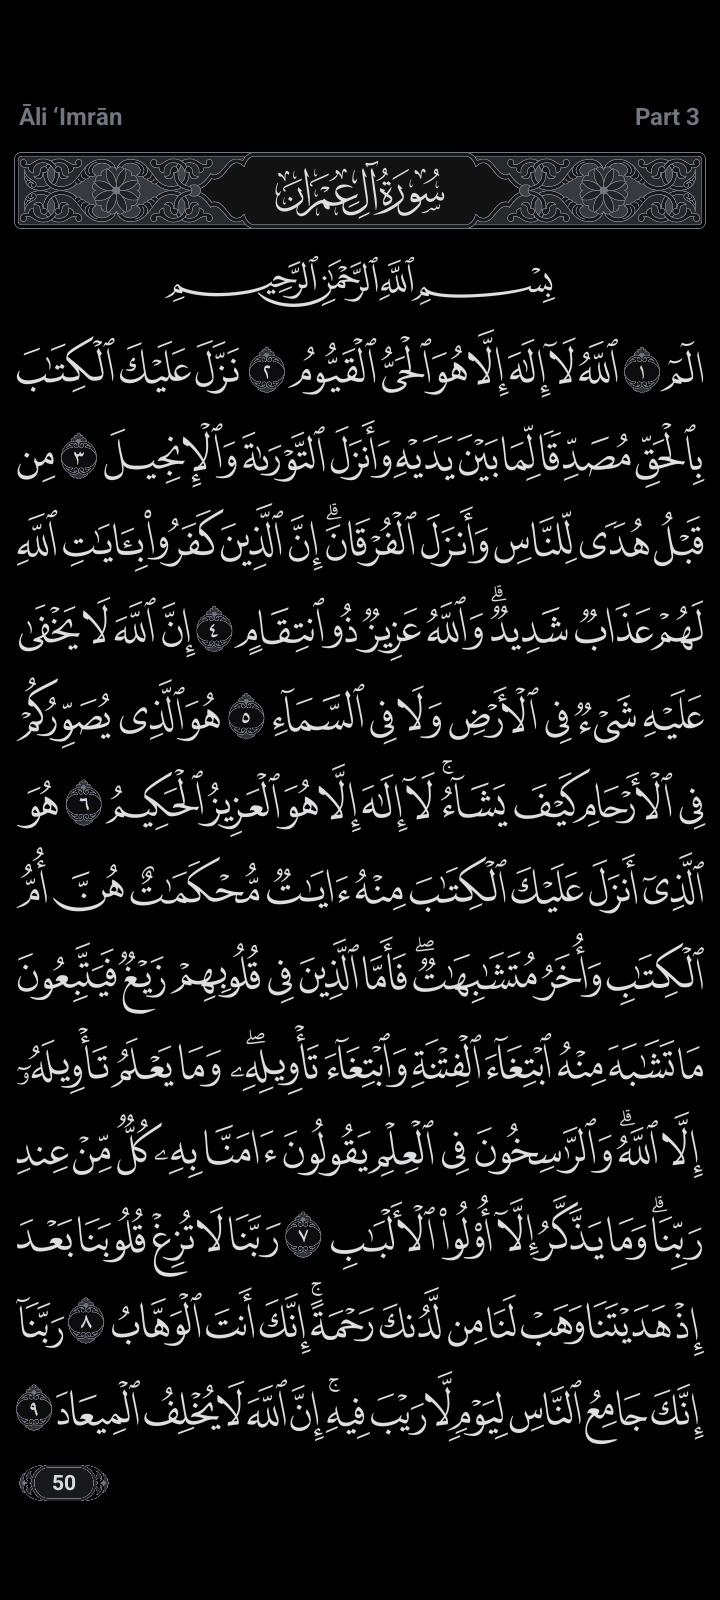 Āli ‘Imrān
Part 3
سُورَةُ آلِ عِمۡرَانَ
بِسۡمِ ٱللَّهِ ٱلرَّحۡمَٰنِ ٱلرَّحِيمِ
الٓمٓ ١ ٱللَّهُ لَآ إِلَٰهَ إِلَّا هُوَ ٱلۡحَيُّ ٱلۡقَيُّومُ ٢ نَزَّلَ عَلَيۡكَ ٱلۡكِتَٰبَ
بِٱلۡحَقِّ مُصَدِّقٗا لِّمَا بَيۡنَ يَدَيۡهِ وَأَنزَلَ ٱلتَّوۡرَىٰةَ وَٱلۡإِنجِيلَ ٣ مِن
قَبۡلُ هُدٗى لِّلنَّاسِ وَأَنزَلَ ٱلۡفُرۡقَانَۗ إِنَّ ٱلَّذِينَ كَفَرُواْ بِـَٔايَٰتِ ٱللَّهِ
لَهُمۡ عَذَابٞ شَدِيدٞۗ وَٱللَّهُ عَزِيزٞ ذُو ٱنتِقَامٍ ٤ إِنَّ ٱللَّهَ لَا يَخۡفَىٰ
عَلَيۡهِ شَيۡءٞ فِي ٱلۡأَرۡضِ وَلَا فِي ٱلسَّمَآءِ ٥ هُوَ ٱلَّذِي يُصَوِّرُكُمۡ
فِي ٱلۡأَرۡحَامِ كَيۡفَ يَشَآءُۚ لَآ إِلَٰهَ إِلَّا هُوَ ٱلۡعَزِيزُ ٱلۡحَكِيمُ ٦ هُوَ
ٱلَّذِيٓ أَنزَلَ عَلَيۡكَ ٱلۡكِتَٰبَ مِنۡهُ ءَايَٰتٞ مُّحۡكَمَٰتٌ هُنَّ أُمُّ
ٱلۡكِتَٰبِ وَأُخَرُ مُتَشَٰبِهَٰتٞۖ فَأَمَّا ٱلَّذِينَ فِي قُلُوبِهِمۡ زَيۡغٞ فَيَتَّبِعُونَ
مَا تَشَٰبَهَ مِنۡهُ ٱبۡتِغَآءَ ٱلۡفِتۡنَةِ وَٱبۡتِغَآءَ تَأۡوِيلِهِۦۖ وَمَا يَعۡلَمُ تَأۡوِيلَهُۥٓ
إِلَّا ٱللَّهُۗ وَٱلرَّٰسِخُونَ فِي ٱلۡعِلۡمِ يَقُولُونَ ءَامَنَّا بِهِۦ كُلّٞ مِّنۡ عِندِ
رَبِّنَاۗ وَمَا يَذَّكَّرُ إِلَّآ أُوْلُواْ ٱلۡأَلۡبَٰبِ ٧ رَبَّنَا لَا تُزِغۡ قُلُوبَنَا بَعۡدَ
إِذۡ هَدَيۡتَنَا وَهَبۡ لَنَا مِن لَّدُنكَ رَحۡمَةًۚ إِنَّكَ أَنتَ ٱلۡوَهَّابُ ٨ رَبَّنَآ
إِنَّكَ جَامِعُ ٱلنَّاسِ لِيَوۡمٖ لَّا رَيۡبَ فِيهِۚ إِنَّ ٱللَّهَ لَا يُخۡلِفُ ٱلۡمِيعَادَ ٩
50